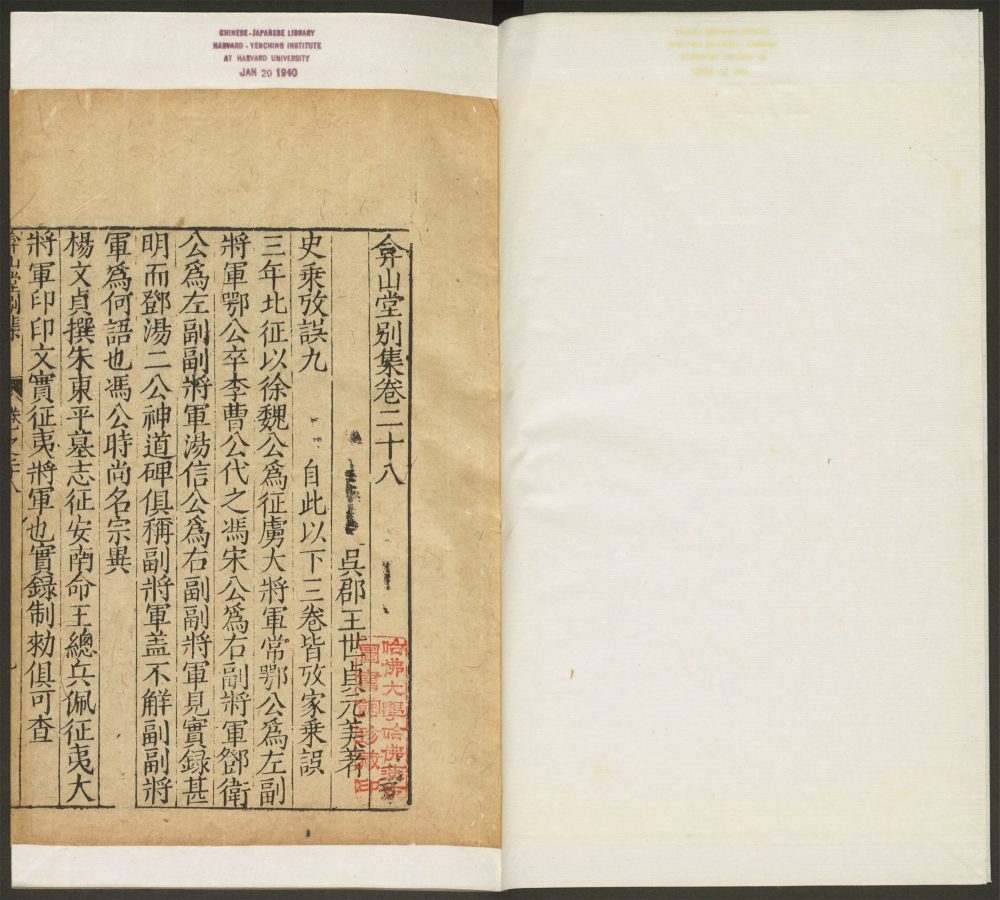 CHINESE-JAPANESE LIBRARY
HARVARD-YENCHING INSTITUTE
AT HARVARD UNIVERSITY
JAN 20 1940
弇山堂别集卷二十八
吳郡王世貞元美著
史乗攷誤九 自此以下三卷皆攷家乗誤
三年北征以徐魏公爲征虜大將軍常鄂公爲左副
將軍鄂公卒李曹公代之馮宋公爲右副將軍鄧衛
公爲左副副將軍湯信公爲右副副將軍見實録甚
明而鄧湯二公神道碑俱稱副將軍盖不解副副將
軍爲何語也馮公時尚名宗異
楊文貞撰朱東平墓志征安南命王總兵佩征夷大
將軍印印文實征夷將軍也實録制勑俱可查
弇山堂别集
卷之二十八
哈佛大學哈佛燕京
圖書館珍藏印